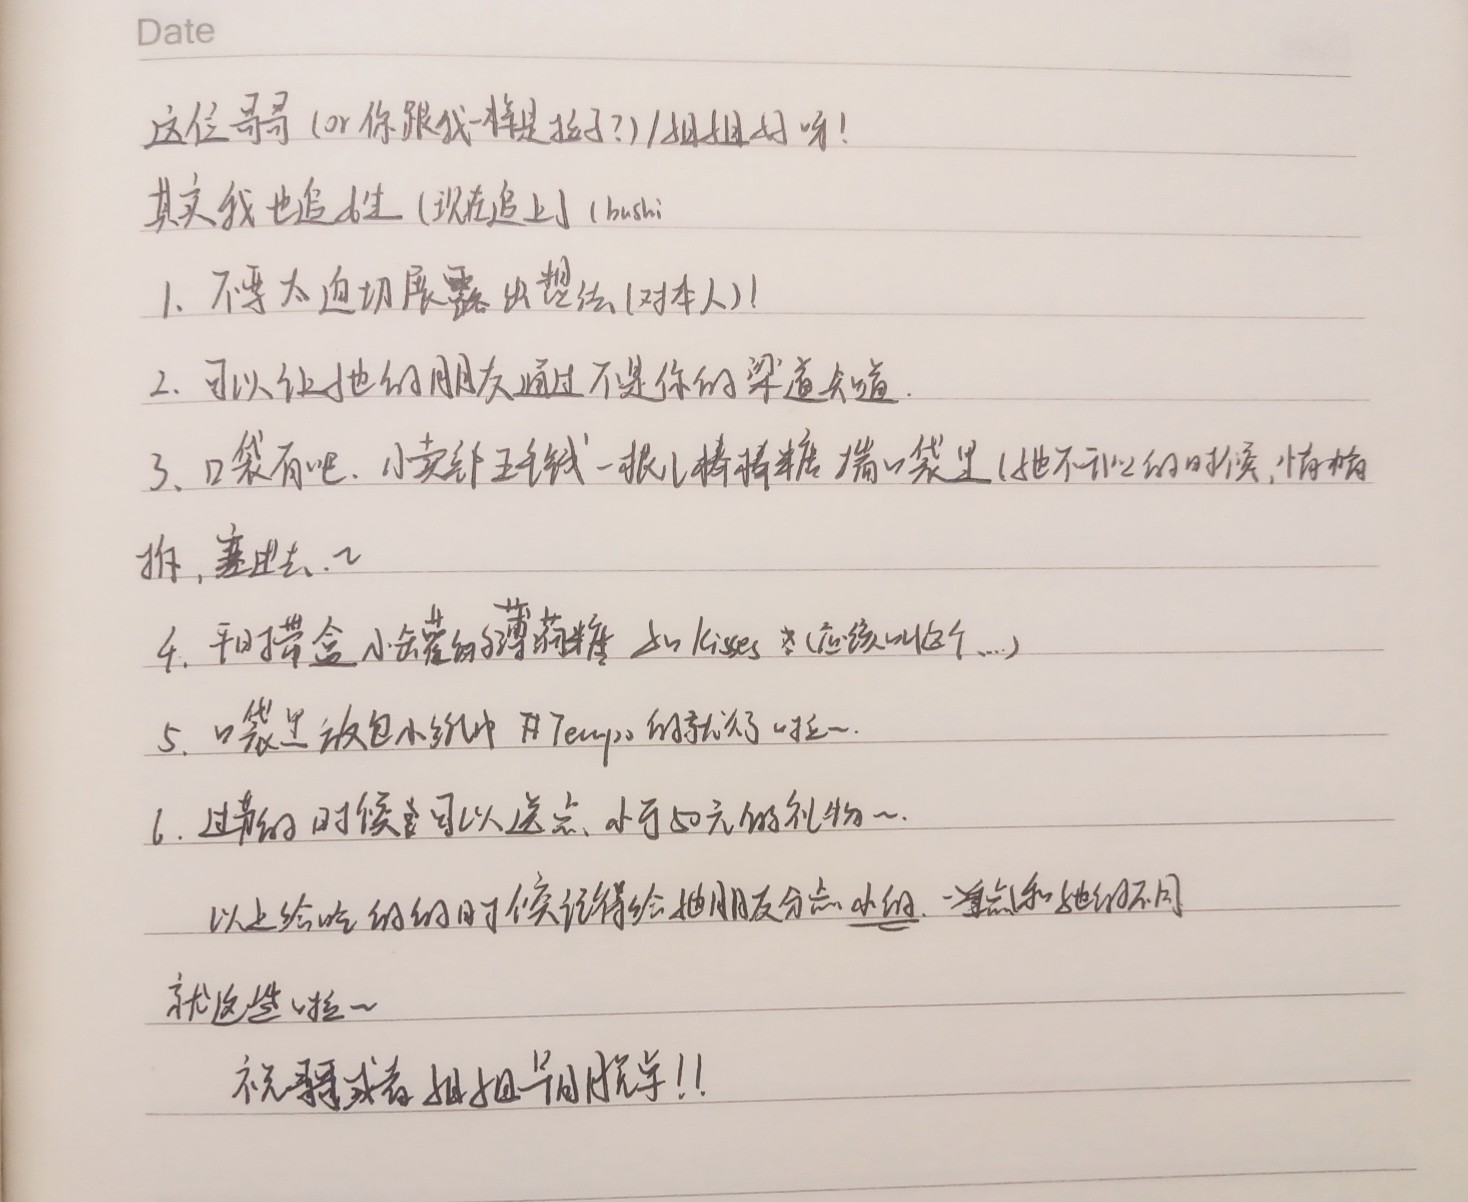 Date
这位哥哥(or 你跟我一样是拉子?)/姐姐好呀!
其实我也追女生(现在追上)(bushi
1、不要太迫切展露出想法(对本人)!
2、可以让她的朋友通过不是你的渠道知道.
3、口袋有吧、小卖部五毛钱一根儿棒棒糖揣口袋里(她不开心的时候,悄悄
拆,塞进去.~
4、平时带盒小罐的薄荷糖 如kisses(应该叫这个....)
5、口袋里放包小纸巾 用Tempo的就好了啦~.
6、过节的时候可以送点、小于50元的礼物~.
以上给吃的的时候记得给她朋友分点小的、重点和她的不同
就这些啦~
祝哥哥或者姐姐早日脱单!!